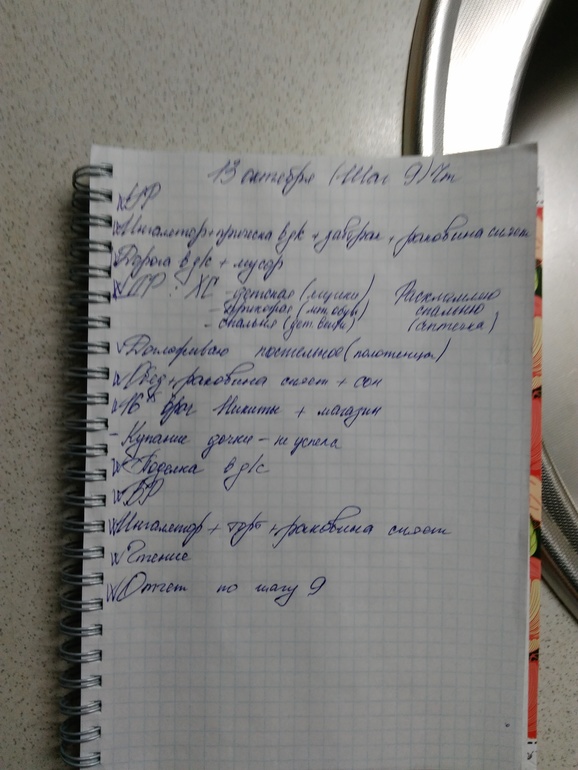 13 октября (Шаг 9) Чт
УР
Ингалятор+прическа в д/с + завтрак + раковина сияет
Дорога в д/с + мусор
ДР: ХС - детская (ящики) Расхламляю
- прихожая (мет. обуви) спальню
- спальня ( (аптечка)
Доглаживаю постельное (полотенца)
Обед + раковина сияет + сон
16 врач Никиты + магазин
- Купание дочки - не успела
Поделка в д/с
ВР
Ингалятор + торт + раковина сияет
Чтение
Отчет по шагу 9